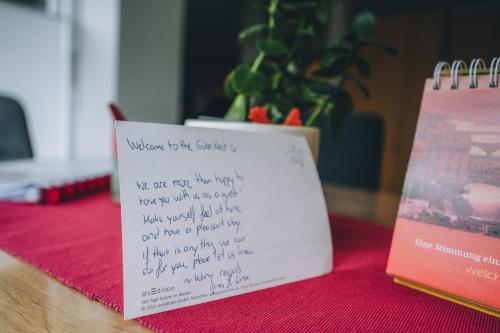 Welcome to the Eulen Nest
We are more than happy to
have you with us as a guest!
Make yourself feel at home
and have a pleasant stay
if there is anything we can
do for you, please let us know
~ Warm regards
arsEdition
Eine Stimmung ein
welch